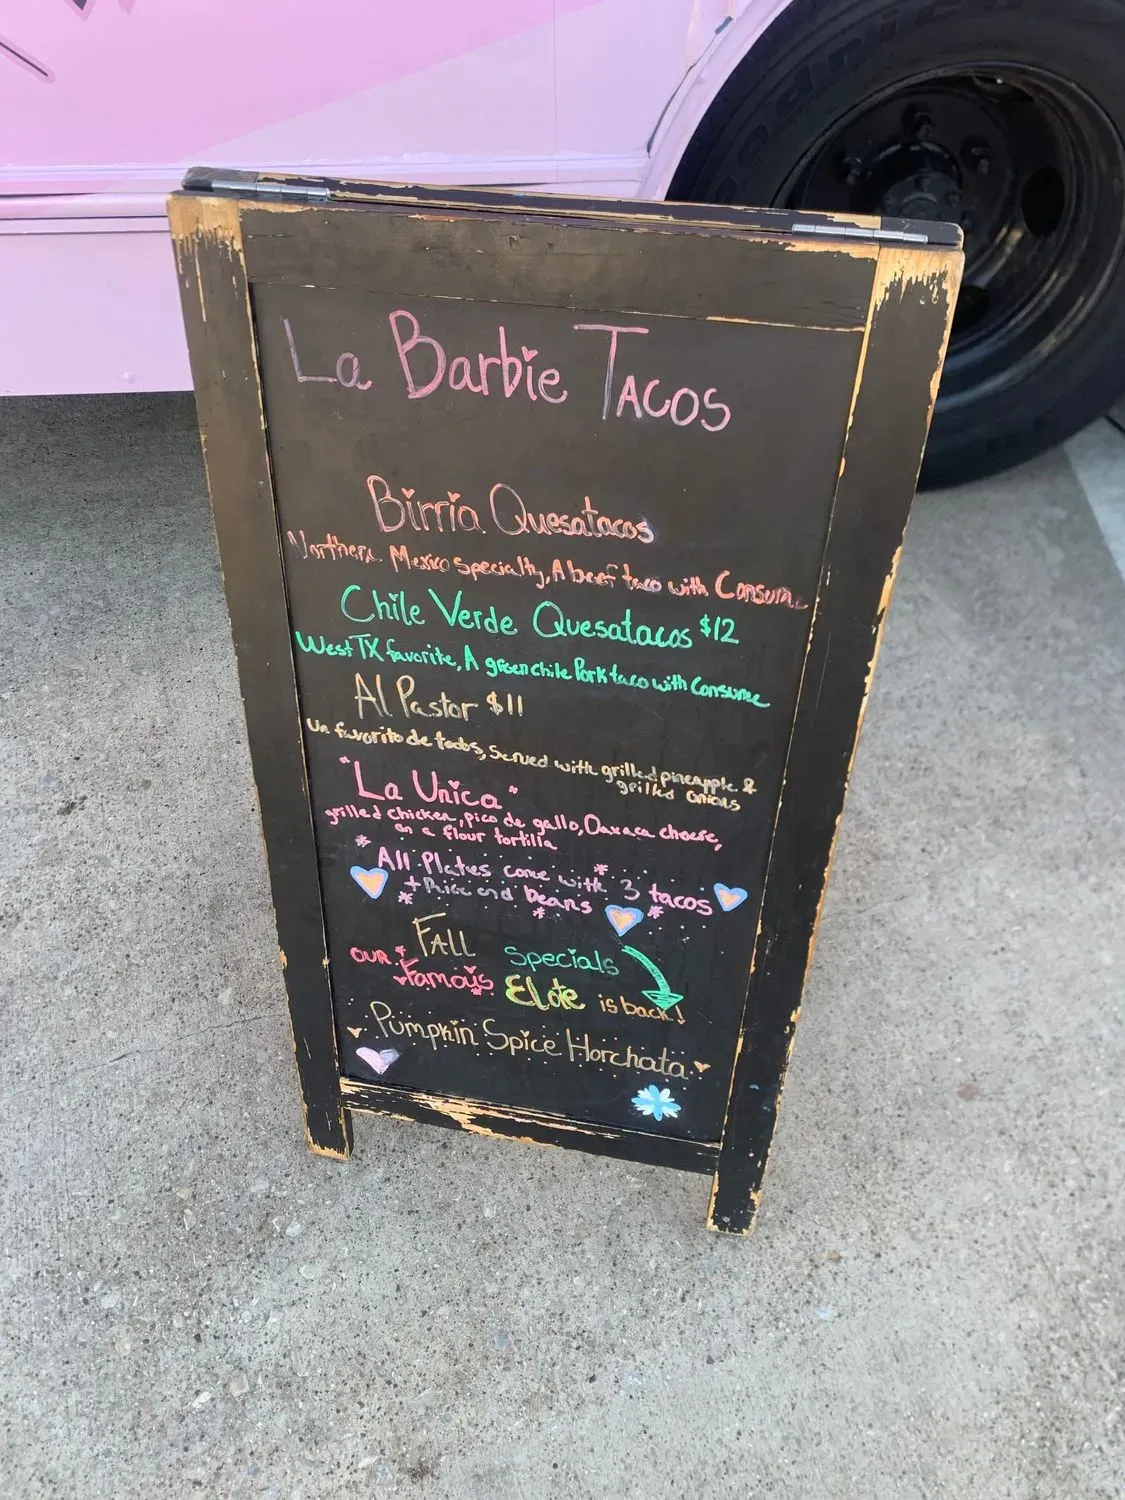 La Barbie TACOS
Birria Quesatacos
Northern Mexico specialty, A beef taco with Consume
Chile Verde Quesatacos $12
West TX favorite, A green chile Pork taco with Consume
Al Pastor $11
Un favorito de todos, Served with grilled pineapple &
grilled onions
"La Unica"
grilled chicken, pico de gallo, Oaxaca cheese,
on a flour tortilla
All Plates come with 3 tacos
+ Rice and beans
FALL Specials
OUR Famous Elote is back!
Pumpkin Spice Horchata